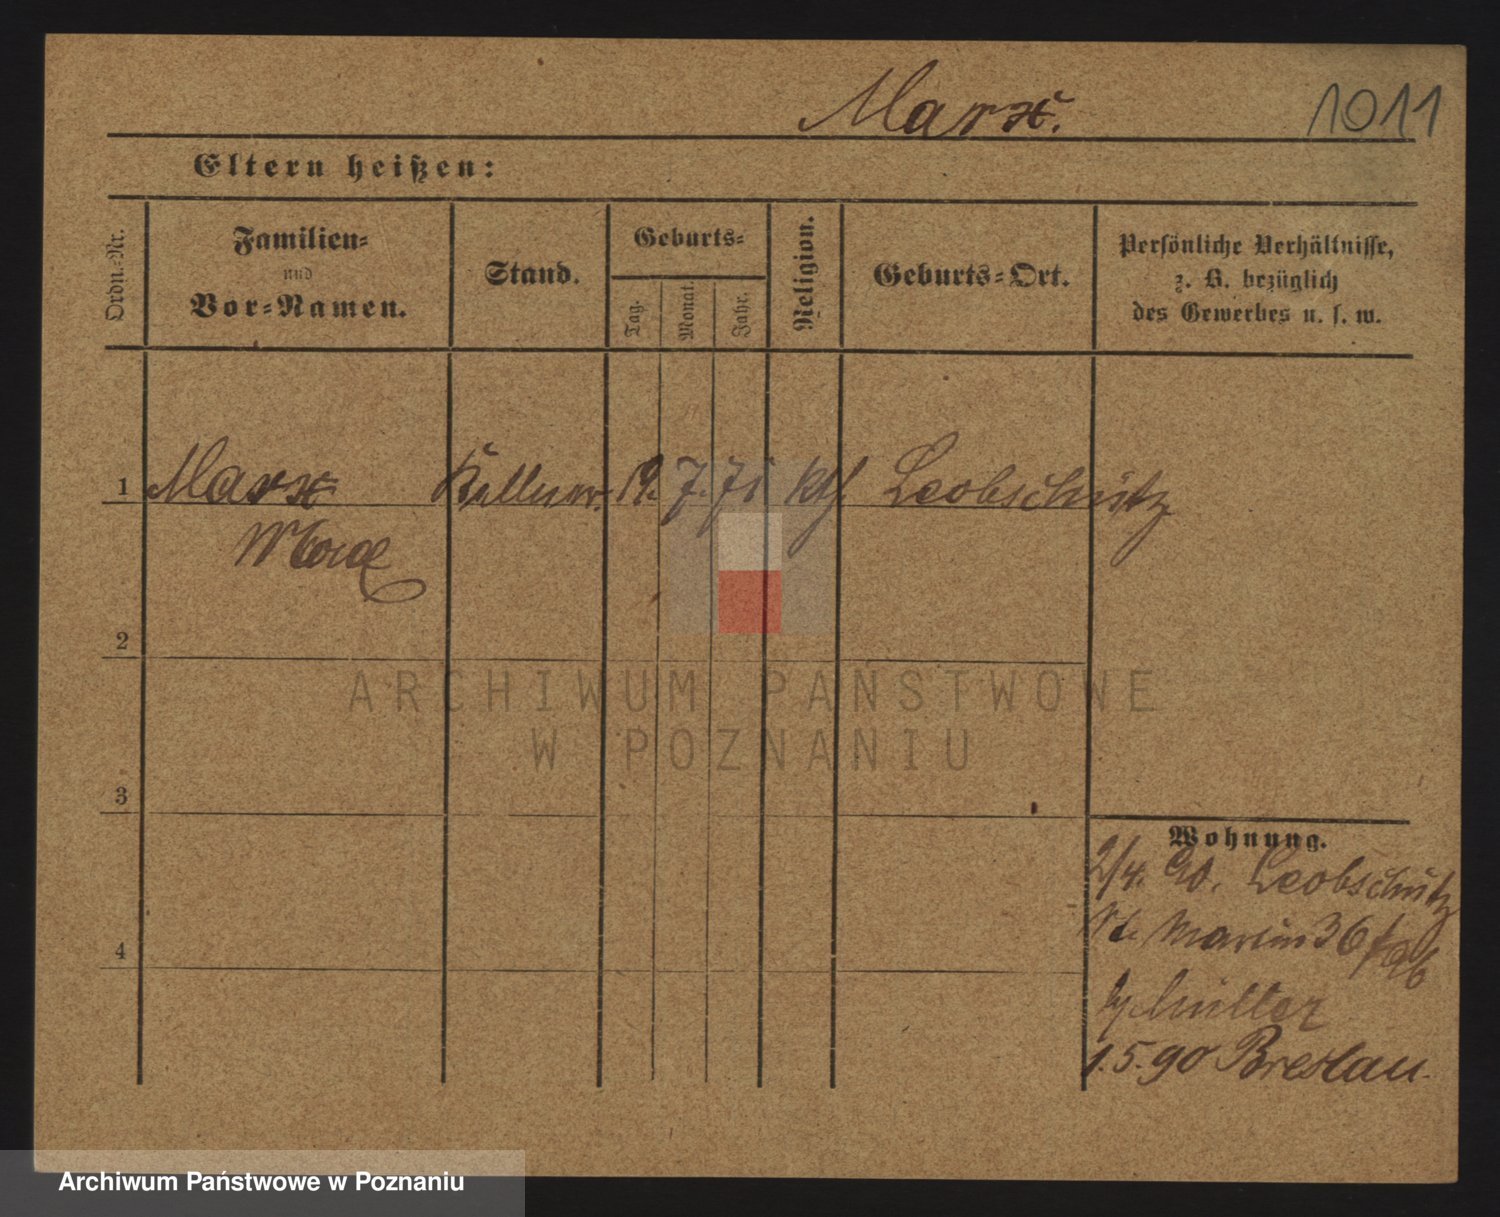 Marx.
1011
Eltern heißen:
Ordn.-Nr.
Familien-
und
Vor-Namen.
Stand.
Geburts-
Tag.
Monat.
Jahr.
Religion.
Geburts-Ort.
Persönliche Verhältnisse,
z. B. bezüglich
des Gewerbes u. s. w.
1 Marx Kellner. 19. 7. 71 kth. Leobschütz
2
3
4
Wohnung.
2/4. 90. Leobschütz
St. Martin 36
Müller
1.5.90 Breslau.
ARCHIWUM PAŃSTWOWE
W POZNANIU
Archiwum Państwowe w Poznaniu